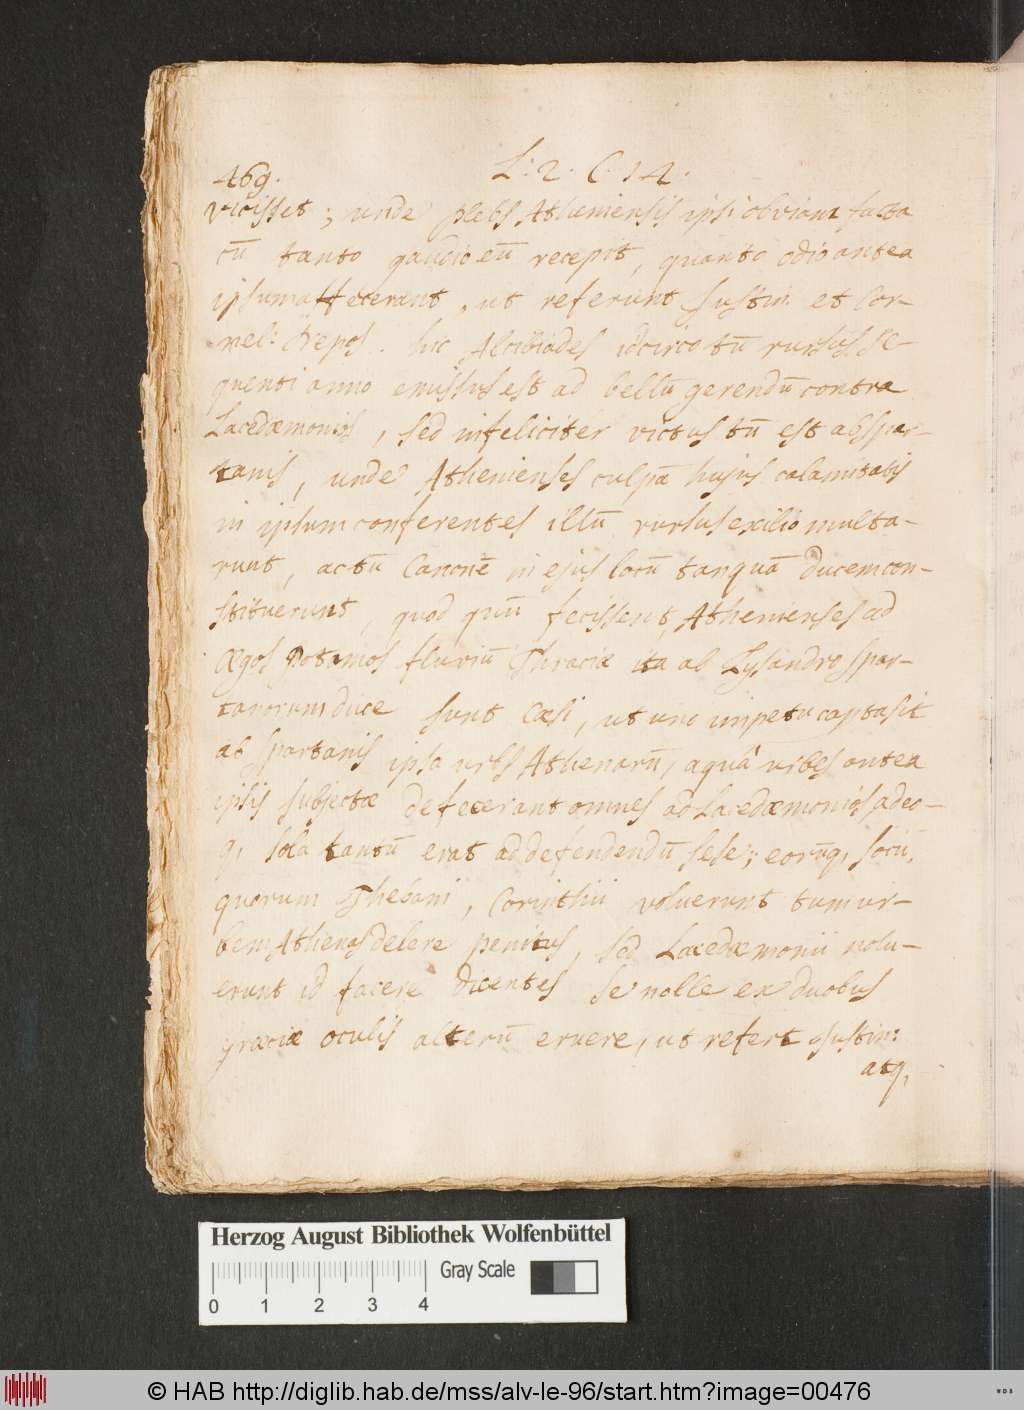 469.
L: 2. C. 14.
vicisset; unde plebs Atheniensis ipsi obviam facta
cū tanto gaudio eū recepit, quanto odio antea
ipsum affecerant, ut referunt Justin. et Cor-
nel: Nepos. hic Alcibiades idcirco tū rursus se-
quenti anno emissus est ad bellū gerendū contra
Lacedæmonios, sed infeliciter victus tū est ab Spar-
tanis, unde Athenienses culpā hujus calamitatis
in ipsum conferentes illū rursus exilio multa-
runt, ac tū Canonē in ejus locū tanquā ducem con-
stituerunt, quod quū fecissent, Athenienses ad
Ægos Potamos fluviū Thraciæ ita ab Lysandro Spar-
tanorum duce sunt cæsi, ut uno impetu capta sit
ab Spartanis ipsa urbs Athenarū, a quâ urbes antea
ipsis subjectæ defecerant omnes ad Lacedæmonios adeo-
q, sola tantū erat ad defendendū sese; eorūq, socii,
quorum Thebani, Corinthii voluerunt tum ur-
bem Athenas delere penitus, sed Lacedæmonii nolu-
erunt id facere dicentes se nolle ex duobus
græciæ oculis alterū eruere, ut refert Justin:
atq,
Herzog August Bibliothek Wolfenbüttel
Gray Scale
0 1 2 3 4
© HAB http://diglib.hab.de/mss/alv-le-96/start.htm?image=00476